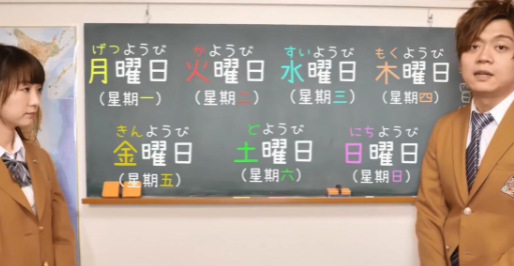 げつようび かようび すいようび もくようび
月曜日 火曜日 水曜日 木曜日
(星期一) (星期二) (星期三) (星期四)
きんようび どようび にちようび
金曜日 土曜日 日曜日
(星期五) (星期六) (星期日)